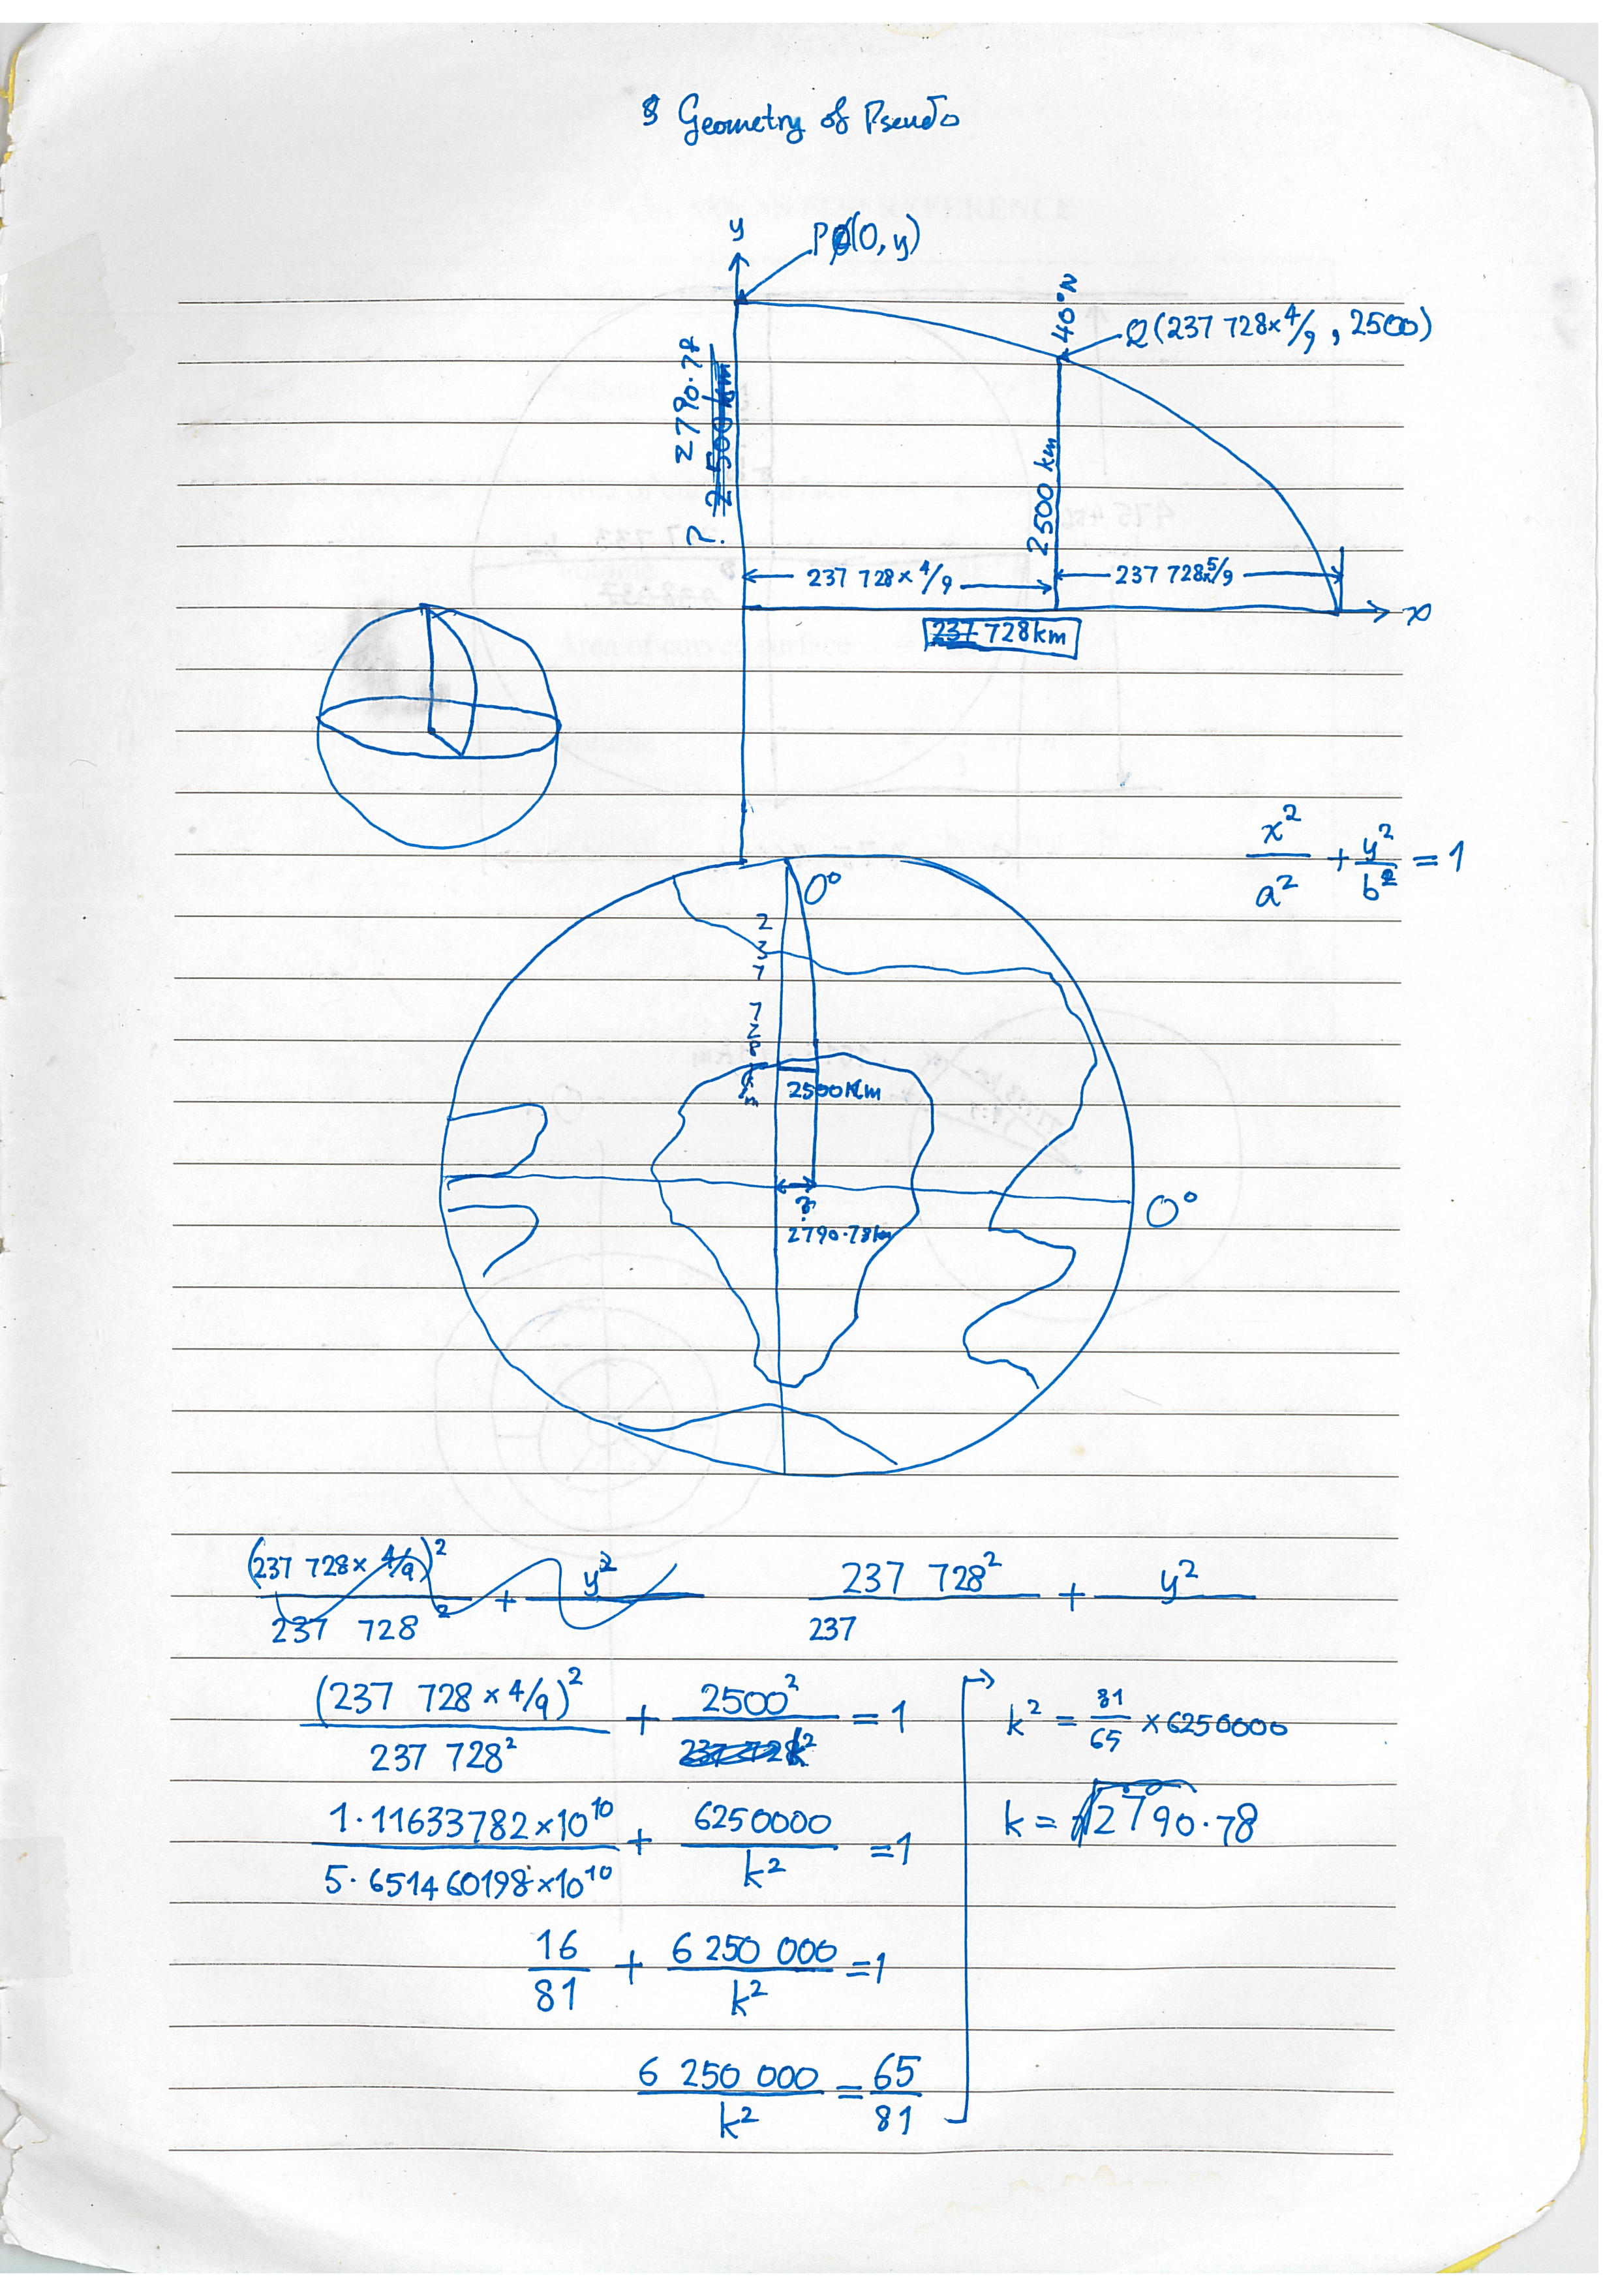 § Geometry of Pseudo
y
P(0, y)
40°N
Q(237 728×4/9, 2500)
2790.78
2500 km
?
2500 km
237 728×4/9
237 728×5/9
x
237 728km
x²/a² + y²/b² = 1
0°
237 728 km
2500Km
0°
?
2790.78km
(237 728×4/9)²/237 728² + y²/
237 728²/237 + y²/
(237 728×4/9)²/237 728² + 2500²/k² = 1
k² = 81/65 ×6250000
1.11633782×10¹⁰/5.651460198×10¹⁰ + 6250000/k² =1
k = √2790.78
16/81 + 6 250 000/k² =1
6 250 000/k² = 65/81